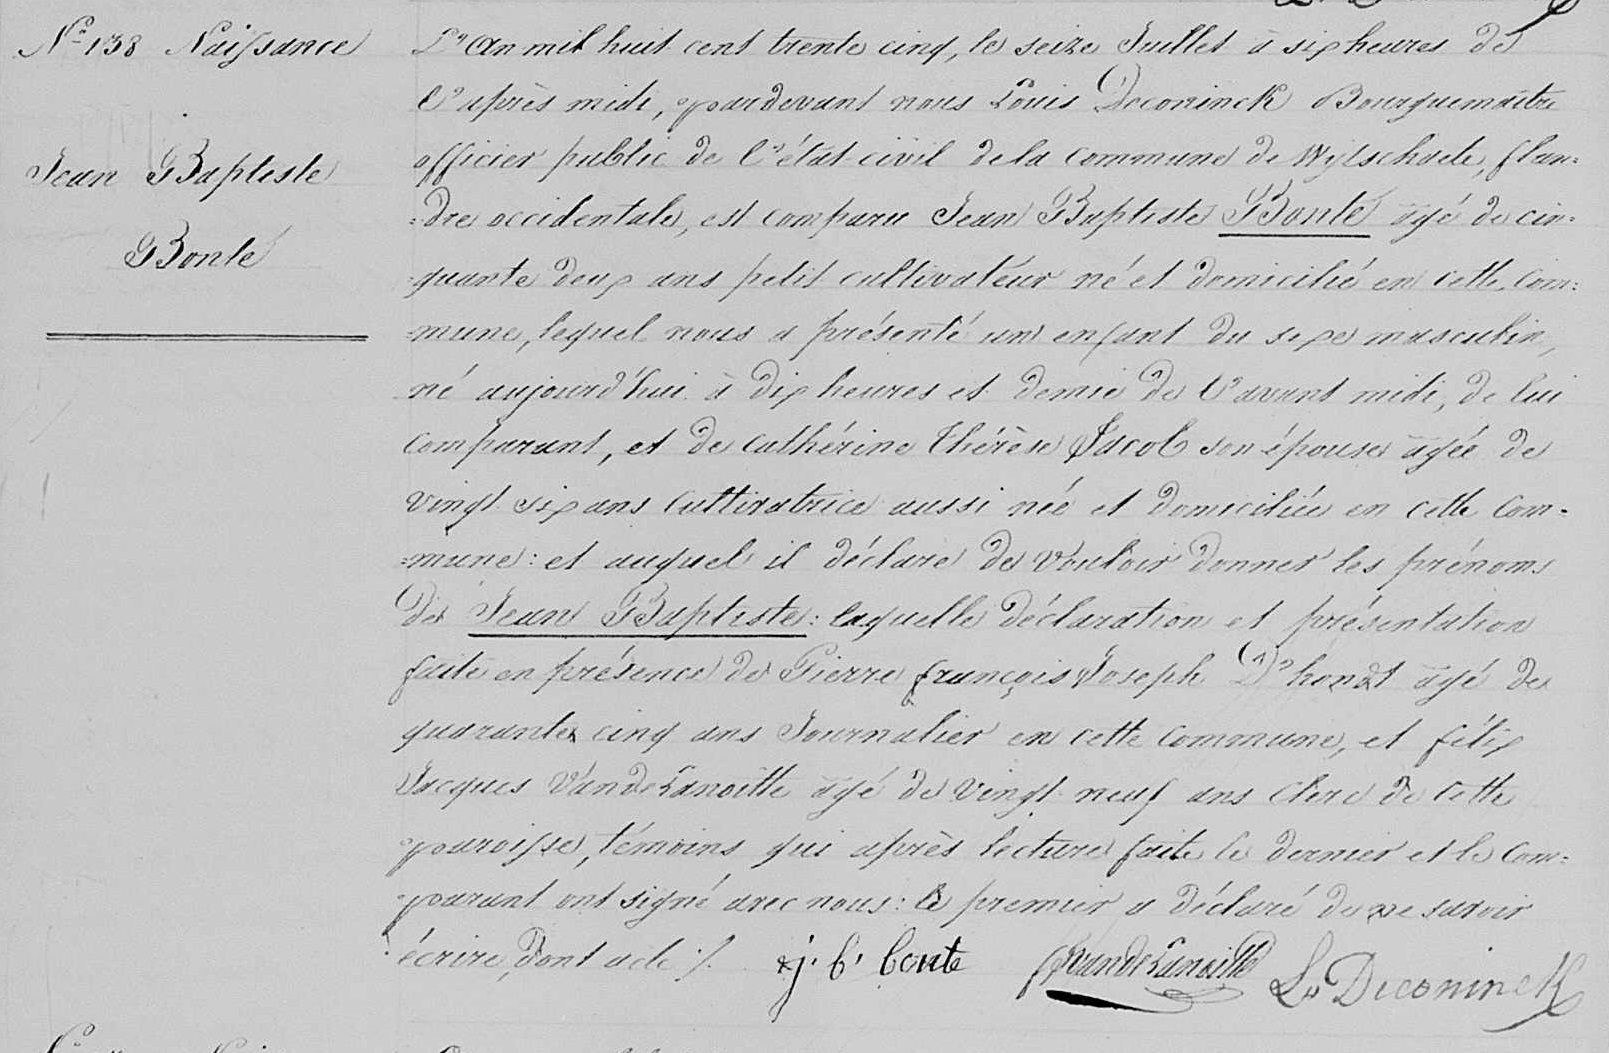 No 138 Naissance
Jean Baptiste
Bonte
L'an mil huit cent trente cinq, le seize Juillet à six heures de
l'après midi, pardevant nous Louis Deconinck Bourguemaître
officier public de l'état civil de la commune de Wytschaete, flan=
=dre occidentale, est comparu Jean Baptiste Bonte âgé de cin=
=quante deux ans petit cultivateur né et domicilié en cette com=
=mune, lequel nous a présenté un enfant du sexe masculin,
né aujourd'hui à dix heures et demie de l'avant midi, de lui
comparant, et de Cathérine Thérèse Jacob son épouse âgée de
vingt six ans cultivatrice aussi née et domiciliée en cette com=
=mune: et auquel il déclare de vouloir donner les prénoms
de Jean Baptiste: laquelle déclaration et présentation
faite en présence de Pierre françois Joseph D'hondt âgé de
quarante cinq ans Journalier en cette commune, et félix
Jacques VandeLanoitte âgé de vingt neuf ans Clerc de cette
paroisse, témoins qui après lecture faite le dernier et le com=
parant ont signé avec nous: le premier a déclaré de ne savoir
écrire, dont acte ./. j. b. bonte fjvandeLanoitte Ls Deconinck